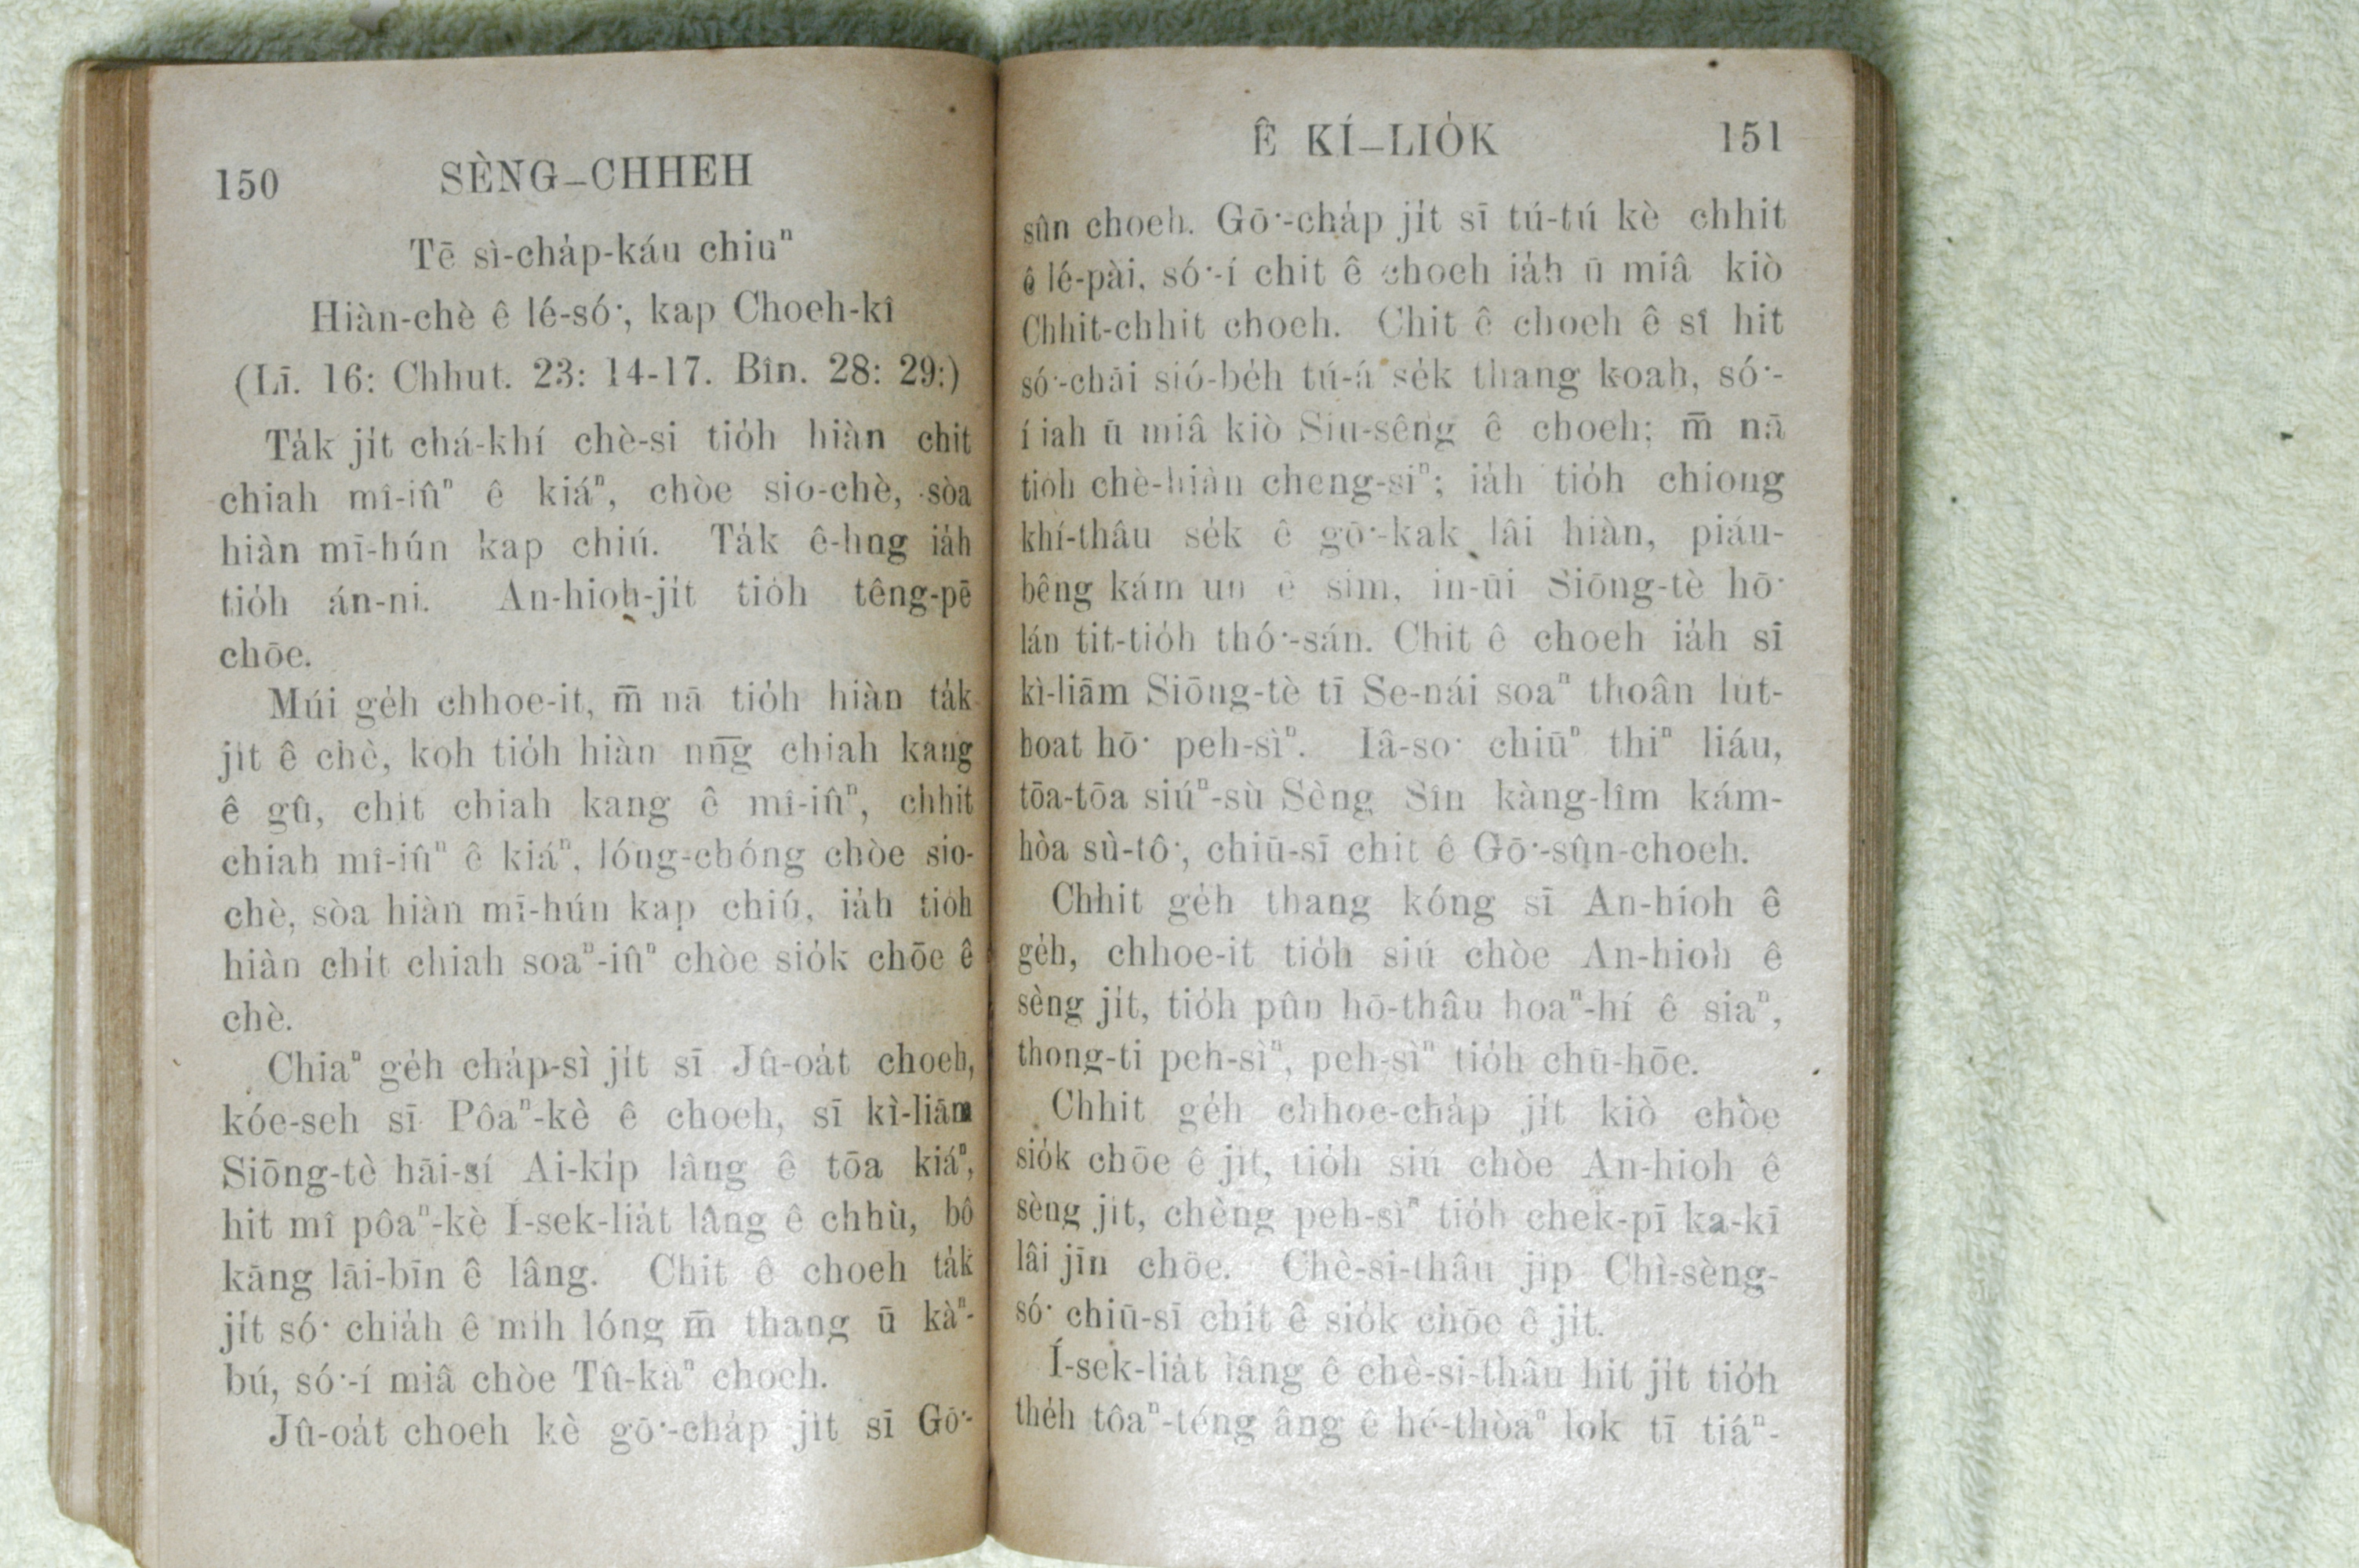 150 SÈNG-CHHEH
Tē sì-cha̍p-káu chiuⁿ
Hiàn-chè ê lé-só͘, kap Choeh-kî
(Lī. 16: Chhut. 23: 14-17. Bîn. 28: 29:)
Ta̍k ji̍t chá-khí chè-si tio̍h hiàn chit
chiah mî-iûⁿ ê kiáⁿ, chòe sio-chè, sòa
hiàn mī-hún kap chiú. Ta̍k ê-hng ia̍h
tio̍h án-ni. An-hioh-ji̍t tio̍h têng-pē
chōe.
Múi ge̍h chhoe-it, m̄ nā tio̍h hiàn ta̍k
ji̍t ê chè, koh tio̍h hiàn nn̄g chiah kang
ê gû, chi̍t chiah kang ê mî-iûⁿ, chhit
chiah mî-iûⁿ ê kiáⁿ, lóng-chóng chòe sio-
chè, sòa hiàn mī-hún kap chiú, ia̍h tio̍h
hiàn chi̍t chiah soaⁿ-iûⁿ chòe sio̍k chōe ê
chè.
Chiaⁿ ge̍h cha̍p-sì ji̍t sī Jû-oa̍t choeh,
kóe-seh sī Pôaⁿ-kè ê choeh, sī kì-liām
Siōng-tè hāi-sí Ai-ki̍p lâng ê tōa kiáⁿ,
hit mî pôaⁿ-kè Í-sek-lia̍t lâng ê chhù, bô
kāng lāi-bīn ê lâng. Chit ê choeh ta̍k
ji̍t só͘ chia̍h ê mi̍h lóng m̄ thang ū kàⁿ-
bú, só͘-í miâ chòe Tû-kàⁿ choeh.
Jû-oa̍t choeh kè gō͘-cha̍p ji̍t sī Gō͘-
Ê KÍ-LIO̍K 151
sûn choeh. Gō͘-cha̍p ji̍t sī tú-tú kè chhit
ê lé-pài, só͘-í chit ê choeh ia̍h ū miâ kiò
Chhit-chhit choeh. Chit ê choeh ê sî hit
só͘-chāi sió-be̍h tú-á se̍k thang koah, só͘-
í iah ū miâ kiò Siu-sêng ê choeh; m̄ nā
tio̍h chè-hiàn cheng-siⁿ; ia̍h tio̍h chiong
khí-thâu se̍k ê gō͘-kak lâi hiàn, piáu-
bêng kám un ê sim, in-ūi Siōng-tè hō͘
lán tit-tio̍h thó͘-sán. Chit ê choeh ia̍h sī
kì-liām Siōng-tè tī Se-nái soaⁿ thoân lu̍t-
hoat hō͘ peh-sìⁿ. Iâ-so͘ chiūⁿ thiⁿ liáu,
tōa-tōa siúⁿ-sù Sèng Sîn kàng-lîm kám-
hòa sù-tô͘, chiū-sī chit ê Gō͘-sûn-choeh.
Chhit ge̍h thang kóng sī An-hioh ê
ge̍h, chhoe-it tio̍h siú chòe An-hioh ê
sèng ji̍t, tio̍h pûn hō-thâu hoaⁿ-hí ê siaⁿ,
thong-ti peh-sìⁿ, peh-sìⁿ tio̍h chū-hōe.
Chhit ge̍h chhoe-cha̍p ji̍t kiò chòe
sio̍k chōe ê ji̍t, tio̍h siú chòe An-hioh ê
sèng ji̍t, chèng peh-sìⁿ tio̍h chek-pī ka-kī
lâi jīn chōe. Chè-si-thâu ji̍p Chì-sèng-
só͘ chiū-sī chit ê sio̍k chōe ê ji̍t.
Í-sek-lia̍t lâng ê chè-si-thâu hit ji̍t tio̍h
the̍h tôaⁿ-téng âng ê hé-thòaⁿ lok tī tiáⁿ-